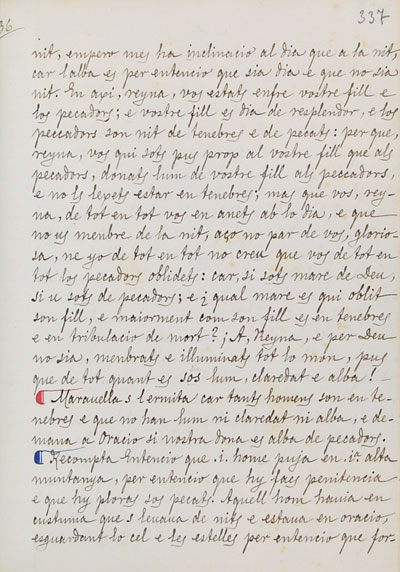 36
337
nit, empero mes ha inclinacio al dia que a la nit,
car lalba es per entencio que sia dia e que no sia
nit. En axi, reyna, vos estats enfre vostre fill e
los pecadors; e vostre fill es dia de resplendor, e los
peccadors son nit de tenebres e de pecats: per que,
reyna, vos qui sots pus prop al vostre fill que als
pecadors, donats lum de vostre fill als peccadors,
e no ls lexets estar en tenebres; mas que vos, rey-
na, de tot en tot vos en anets ab lo dia, e que
no us menbre de la nit, aço no par de vos, glorio-
sa, ne yo de tot en tot no creu que vos de tot en
tot los pecadors oblidets: car, si sots mare de Deu,
si u sots de pecadors; e ¿qual mare es qui oblit
son fill, e maiorment com son fill es en tenebres
e en tribulacio de mort? ¡A, Reyna, e per Deu
no sia, menbrats e illuminats tot lo món, pus
que de tot quant es sos lum, claredat e alba!
Maravella s lermita car tants homens son en te-
nebres e que no han lum ni claredat ni alba, e de-
mana a Oracio si nostra dona es alba de pecadors.
Recompta Entencio que .i. home puja en .iª. alta
muntanya, per entencio que hy faes penitencia
e que hy ploras sos pecats. Aquell hom havia en
custuma que s levava de nits e estava en oracio,
esguardant lo cel e les estelles per entencio que for-